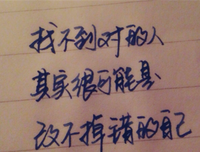 找不到对的人
其实很可能是
改不掉错的自己